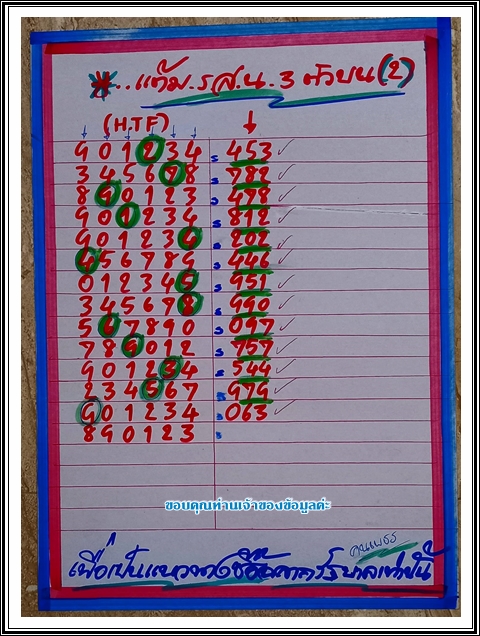 * .. แต้ม. ร ส. น. 3 ตัวบน (2)
(HTF)
9 0 1 2 3 4 : 453 ✓
3 4 5 6 7 8 : 782 ✓
8 9 0 1 2 3 : 478 ✓
9 0 1 2 3 4 : 812 ✓
9 0 1 2 3 4 : 202 ✓
4 5 6 7 8 9 : 446 ✓
0 1 2 3 4 5 : 951 ✓
3 4 5 6 7 8 : 990 ✓
5 6 7 8 9 0 : 097 ✓
7 8 9 0 1 2 : 757 ✓
9 0 1 2 3 4 : 544 ✓
2 3 4 5 6 7 : 979 ✓
9 0 1 2 3 4 : 063 ✓
8 9 0 1 2 3 :
ขอบคุณท่านเจ้าของข้อมูลค่ะ
เพื่อเป็นแนวทางซื้อสลากรัฐบาลเท่านั้น